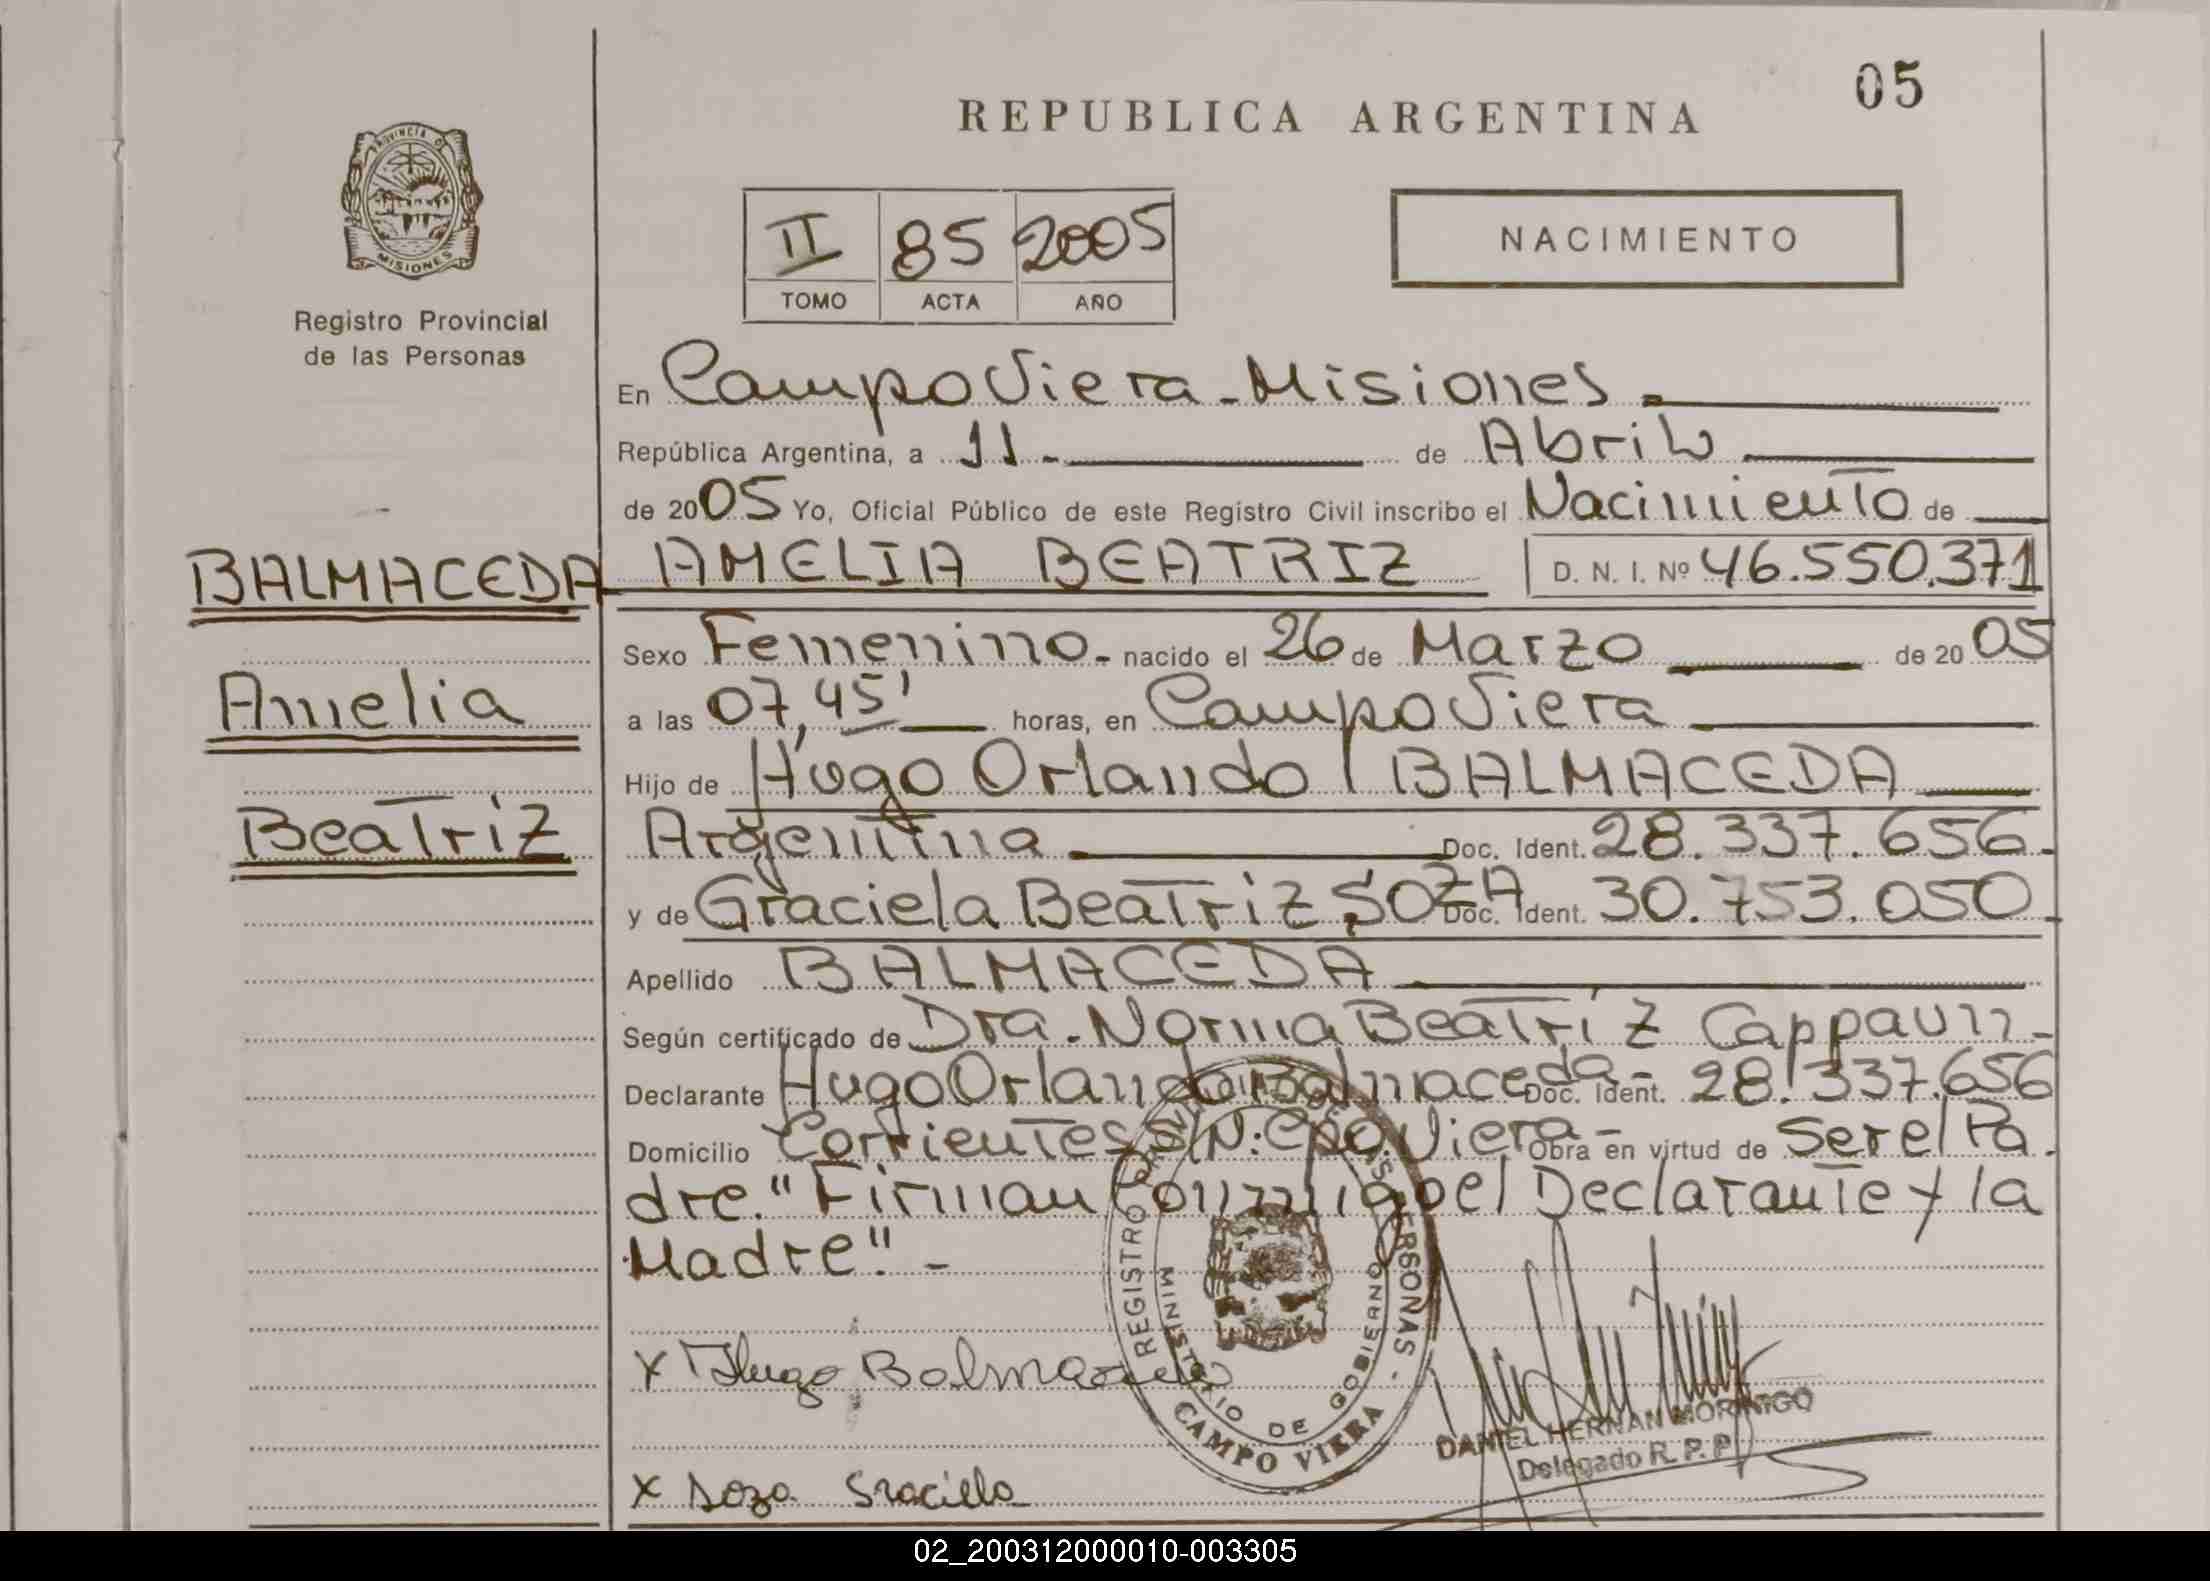 05
REPUBLICA ARGENTINA
PROVINCIA DE
MISIONES
Registro Provincial
de las Personas
II 85 2005
TOMO ACTA AÑO
NACIMIENTO
En Campo Viera - Misiones.
República Argentina, a 11.- de Abril
de 2005 Yo, Oficial Público de este Registro Civil inscribo el Nacimiento de
BALMACEDA AMELIA BEATRIZ D. N. I. Nº 46.550.371
Amelia
Beatriz
Sexo Femenino.- nacido el 26 de Marzo de 2005
a las 07,45' horas, en Campo Viera
Hijo de Hugo Orlando BALMACEDA
Argentina Doc. Ident. 28.337.656.-
y de Graciela Beatriz SOZA Doc. Ident. 30.753.050.-
Apellido BALMACEDA
Según certificado de Dra. Norma Beatriz
Declarante Hugo Orlando Balmaceda- Doc. Ident. 28.337.656
Domicilio Corrientes S/N: Cpo. Viera- Obra en virtud de Ser el Pa
dre." Firman Conmigo el Declarante y la
Madre".-
X Hugo Balmaceda
X Soza Graciela
REGISTRO PROVINCIAL DE LAS PERSONAS -
MINISTERIO DE GOBIERNO
CAMPO VIERA
DANIEL HERNAN MORINIGO
Delegado R. P. P.
02_200312000010-003305